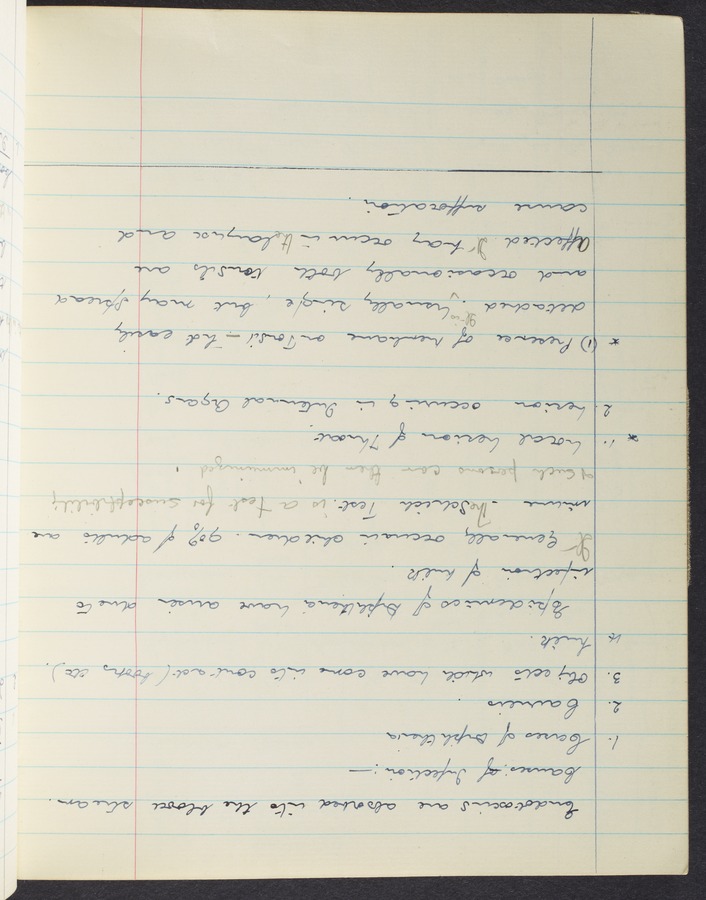 Endotoxins are absorbed into the blood stream.
Causes of Infection: —
1. Cases of Diphtheria
2. Carriers.
3. Objects which have come into contact (books etc).
4. Milk.
Epidemics of Diphtheria have arisen due to
infection of milk.
It Generally occurs in children. 90% of adults are
imune - The Schick Test is a test for susceptibility
& such persons can then be immunized.
* 1. Local Lesion of Throat
2. Lesion occuring in Internal Organs.
* (1) Presence of membrane on Tonsil - not easily
detached. It is Usually single, but may spread
and occasionally both Tonsils are
affected. It may occur in the larynx and
cause suffocation.